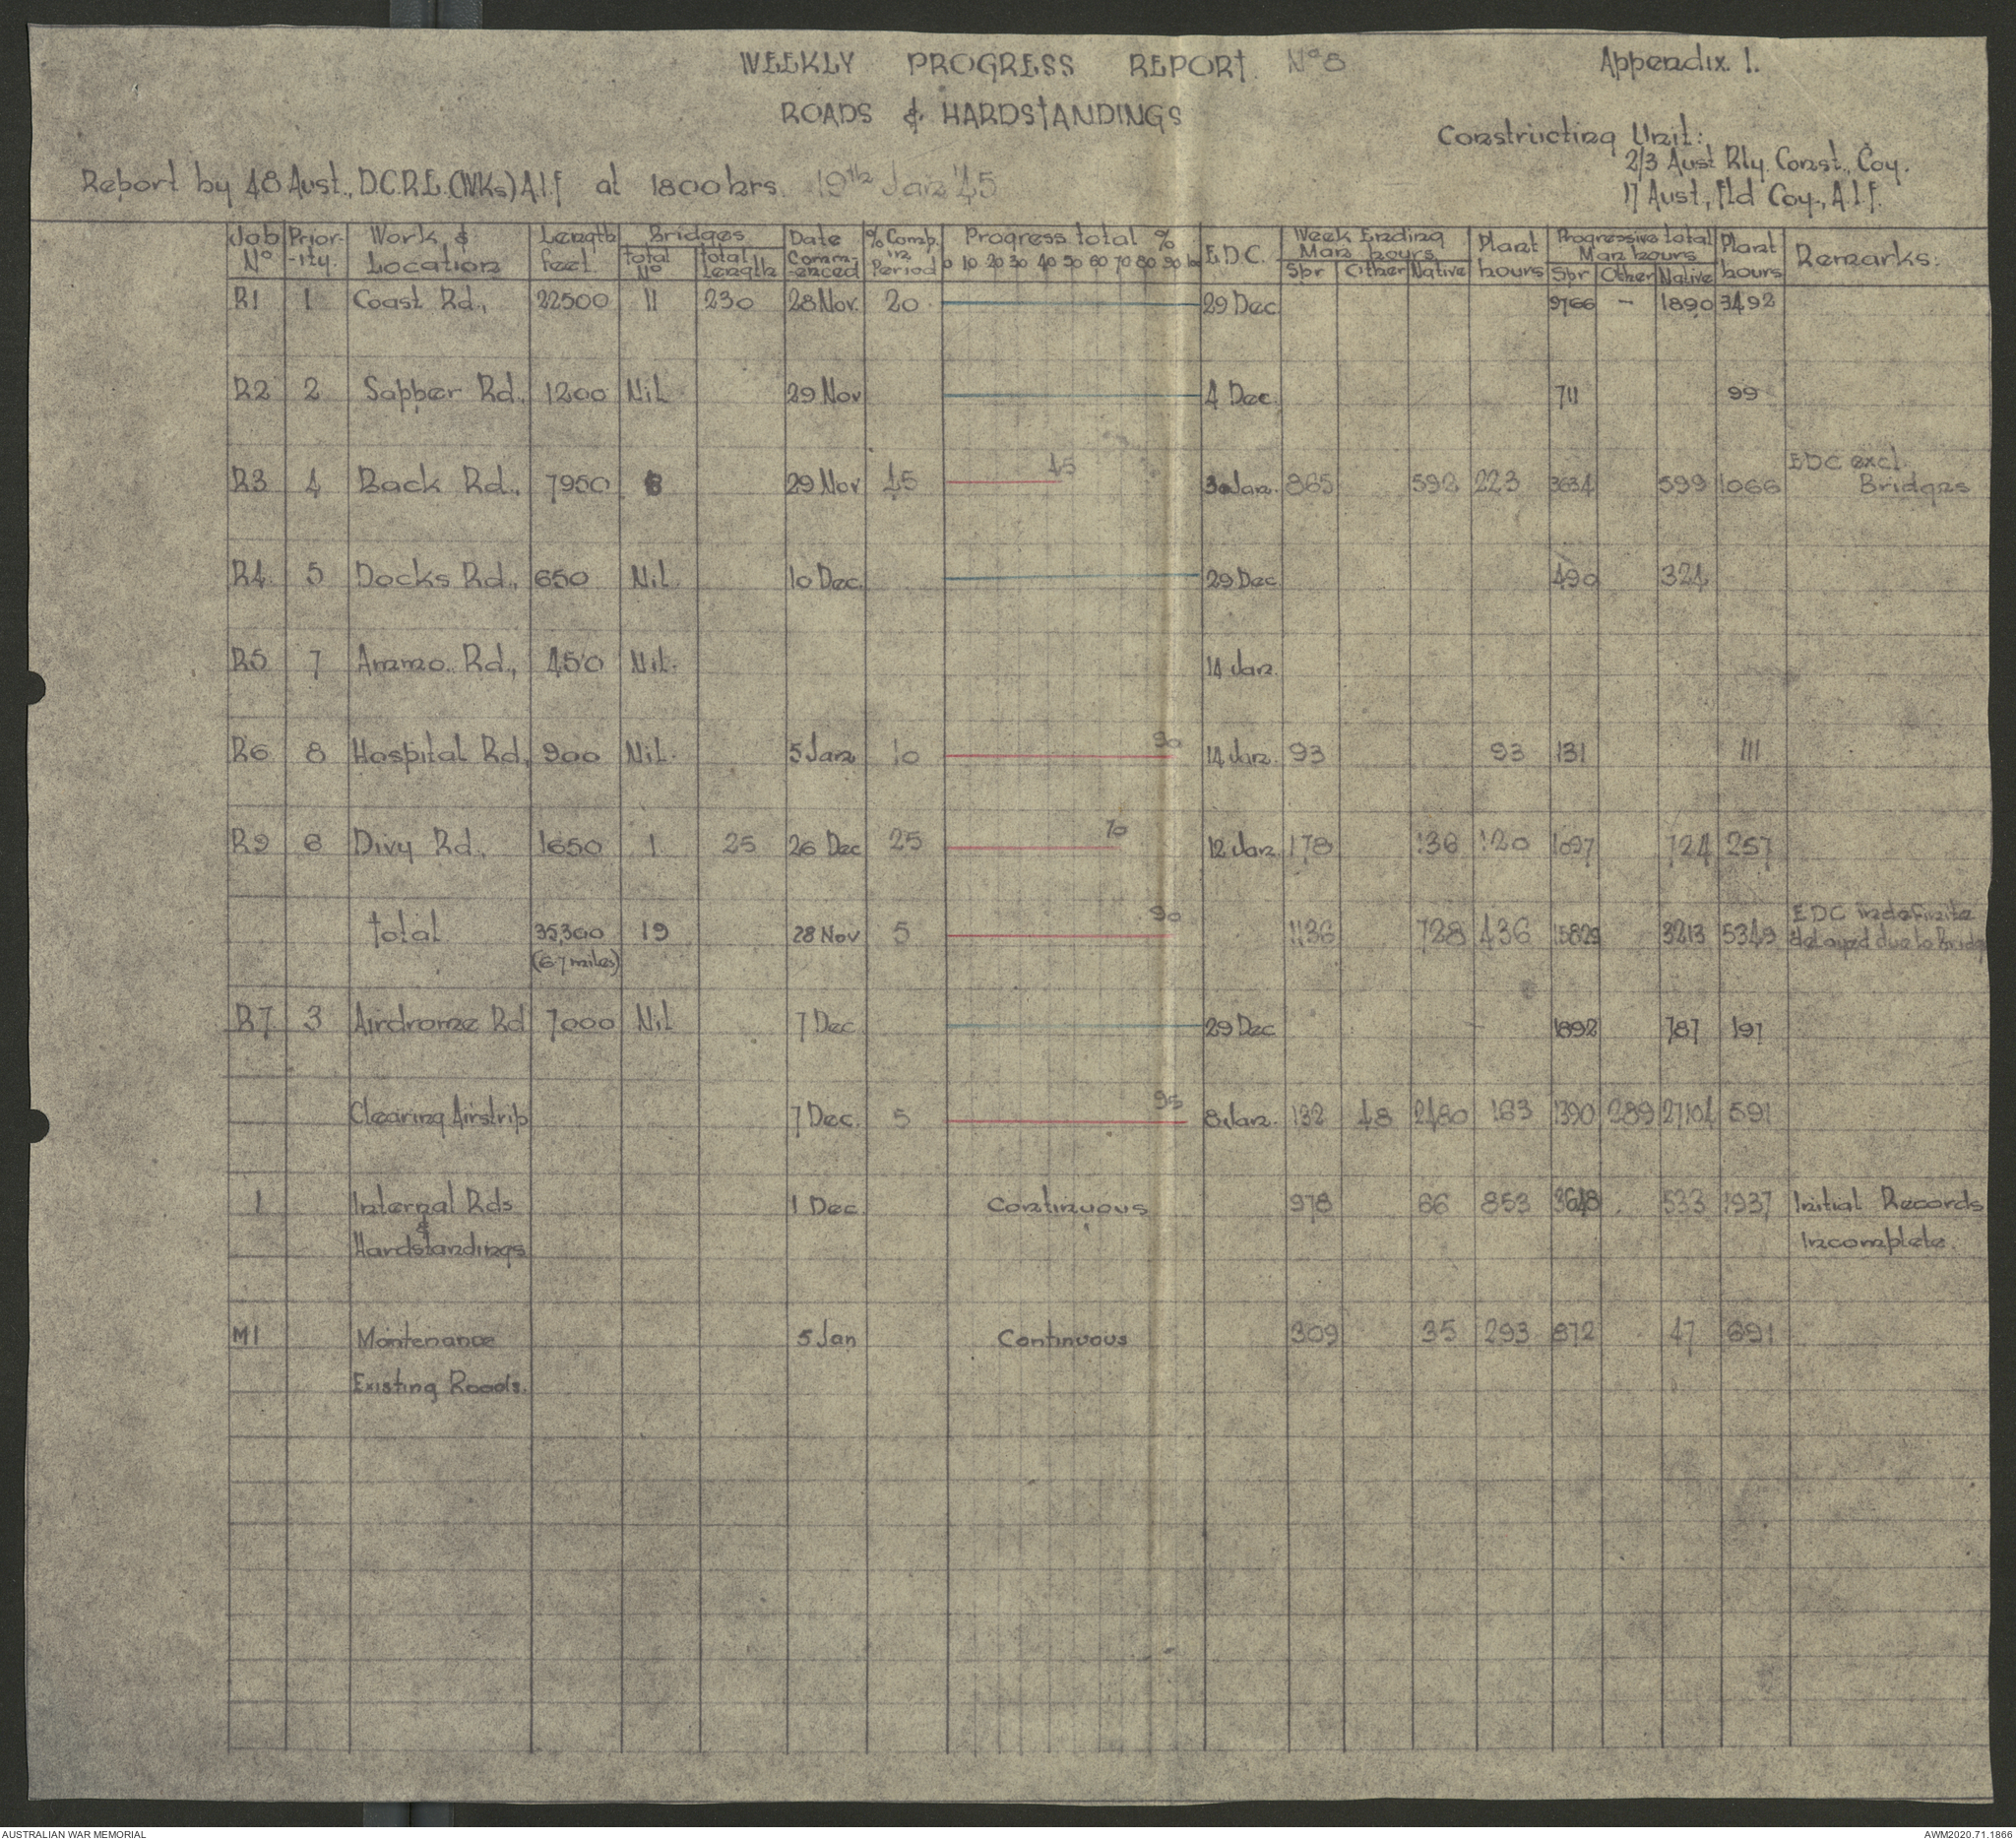 WEEKLY PROGRESS REPORT. Nº 8 Appendix 1.
ROADS & HARDSTANDINGS
Constructing Unit:
2/3 Aust Rly. Const., Coy.
17 Aust., Fld Coy., A.I.F.
Report by 48 Aust., D.C.R.E. (WKs) A.I.F at 1800 hrs. 19th Jan '45
Job Nº Prior-ity. Work & Location Length feet Bridges total Nº total Length Date Comm-enced % Comp. in Period Progress total % 0 10 20 30 40 50 60 70 80 90 E.D.C. Week Ending Man hours Spr Other Native Plant hours Progressive total Man hours Spr Other Native Plant hours Remarks:
R1 1 Coast Rd., 22500 11 230 28 Nov. 20 29 Dec 9766 - 1890 3492
R2 2 Sapper Rd., 1200 Nil 29 Nov 4 Dec. 711 99
R3 4 Back Rd., 7950 29 Nov 45 45 Jan. 865 592 223 3634 599 1066 EDC excl. Bridges
R4 5 Docks Rd., 650 Nil 10 Dec. 29 Dec 490 324
R5 7 Ammo. Rd., 450 Nil. 14 Jan.
R6 8 Hospital Rd, 900 Nil. 5 Jan 10 90 14 Jan. 93 93 131 111
R9 6 Divy Rd. 1650 1 25 26 Dec 25 70 12 Jan 178 136 120 1097 724 257
total 35,300 19 28 Nov 5 90 1136 728 436 15829 3213 5349 EDC indefinite
(6.7 miles) delayed due to Bridg
R7 3 Airdrome Rd 7000 Nil 7 Dec 29 Dec 1892 787 197
Clearing Airstrip 7 Dec. 5 95 8 Jan. 132 48 2480 163 1390 289 27104 591
1 Internal Rds 1 Dec Continuous 978 66 853 3648 533 1937 Initial Records
&
Hardstandings Incomplete.
M1 Maintenance 5 Jan Continuous 309 35 293 872 47 691
Existing Roads.
AUSTRALIAN WAR MEMORIAL AWM2020.71.1866